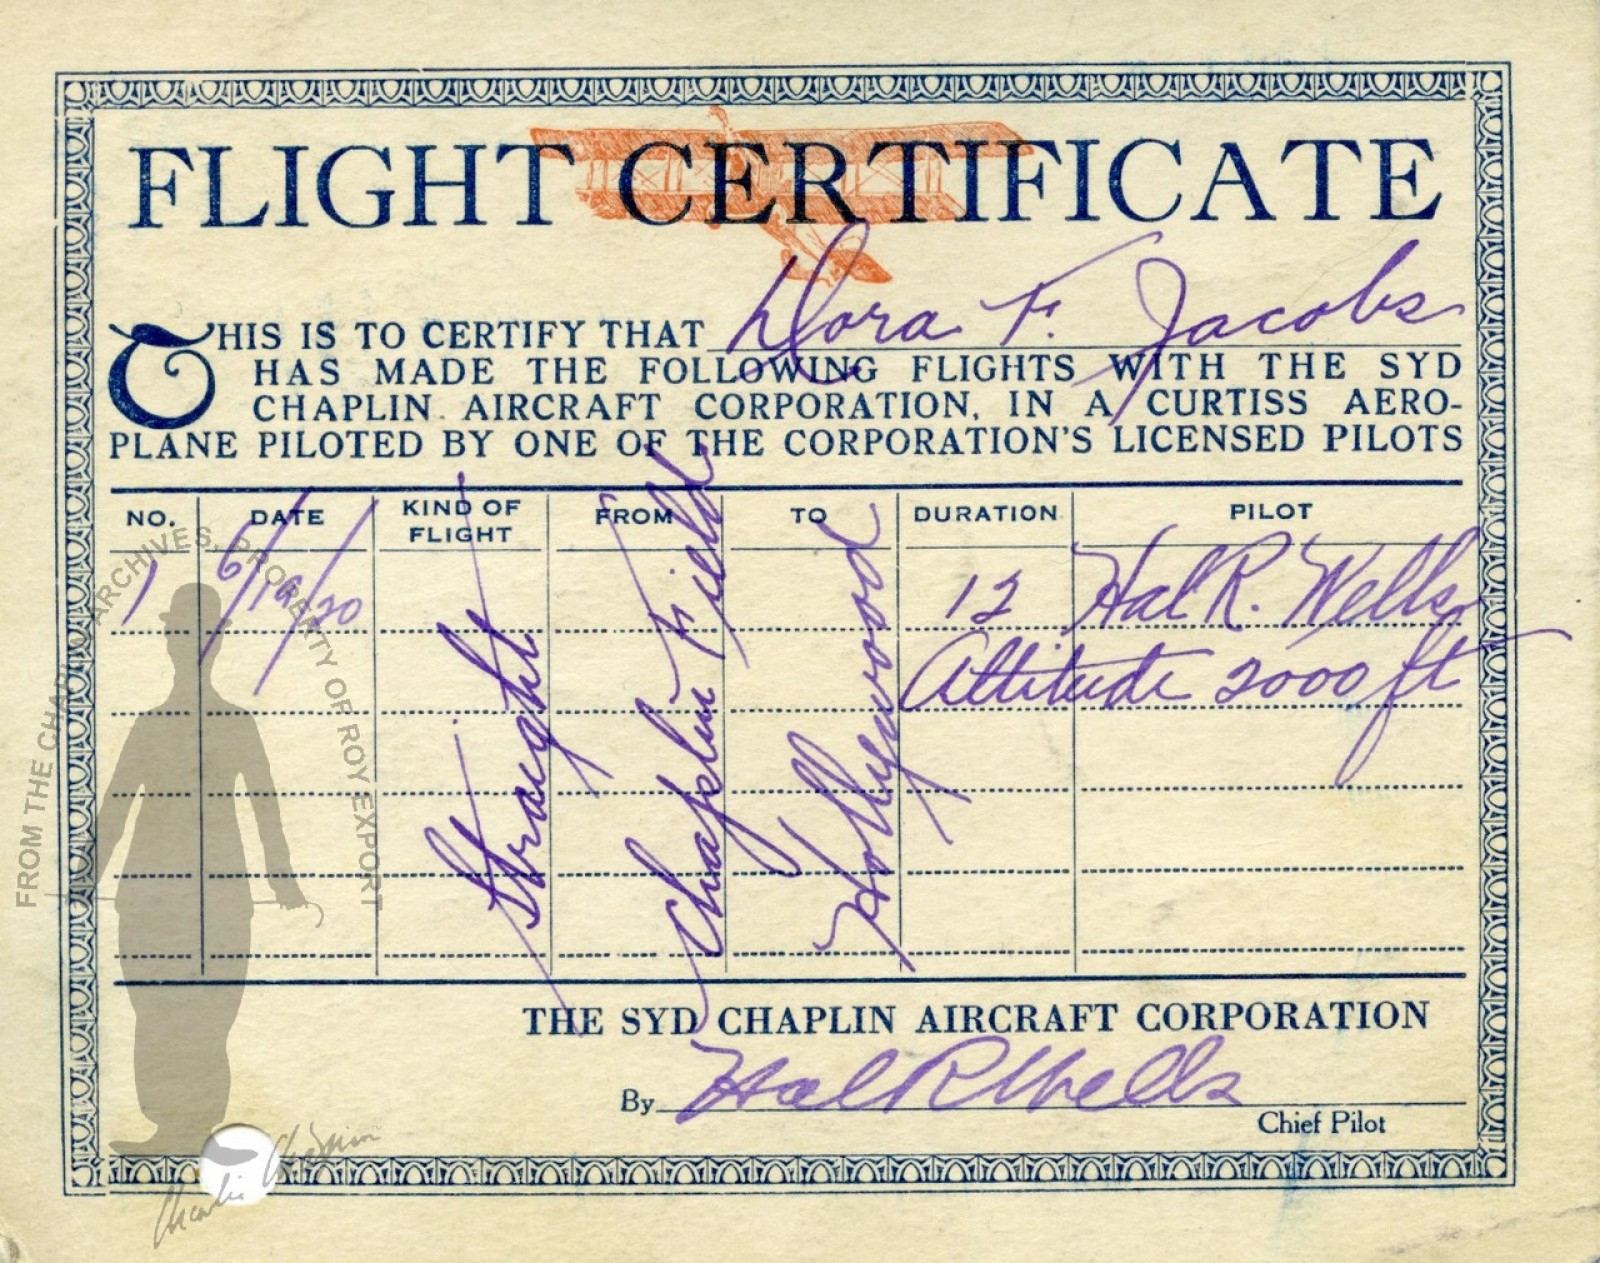 FLIGHT CERTIFICATE
THIS IS TO CERTIFY THAT Dora F. Jacobs
HAS MADE THE FOLLOWING FLIGHTS WITH THE SYD
CHAPLIN AIRCRAFT CORPORATION, IN A CURTISS AERO-
PLANE PILOTED BY ONE OF THE CORPORATION'S LICENSED PILOTS
NO. DATE KIND OF FLIGHT FROM TO DURATION PILOT
1 6/19/20 Straight Chaplin Field Hollywood 12 Hal R. Wells
Altitude 2000 ft
THE SYD CHAPLIN AIRCRAFT CORPORATION
By Hal R Wells
Chief Pilot
FROM THE CHAPLIN ARCHIVES, PROPERTY OF ROY EXPORT
Charlie Chaplin